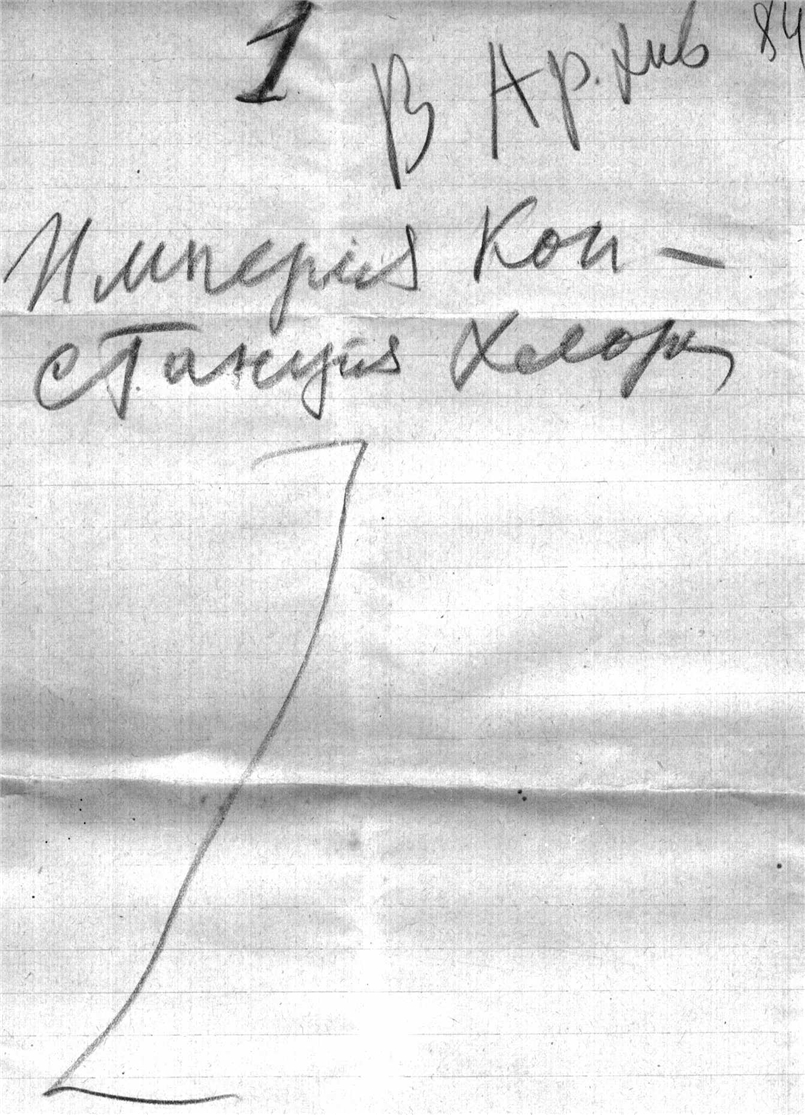 1 В Архив 84
Империя Кон-
станция Хлора